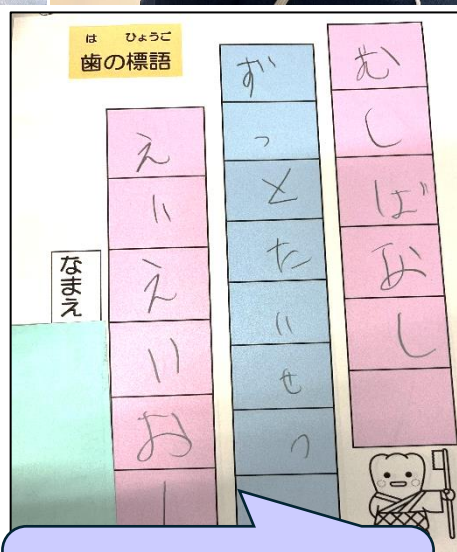 は ひょうご
歯の標語
むしばなし
ずっとたいせつ
えいえいおー
なまえ